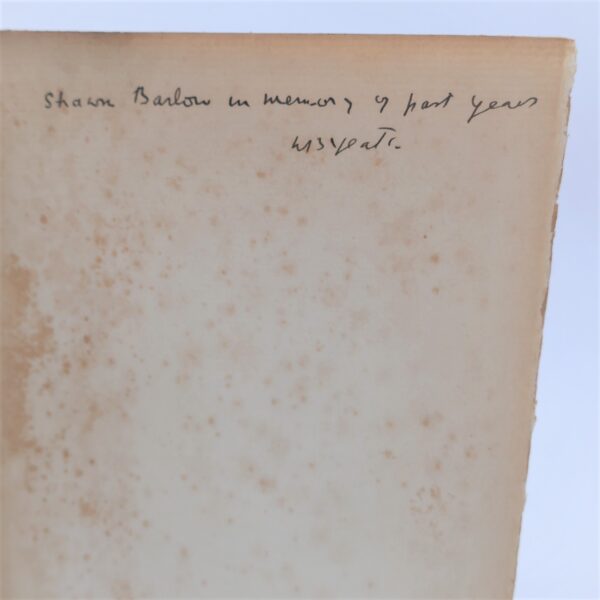 Shawn Barlow in memory of past years
WBYeats.